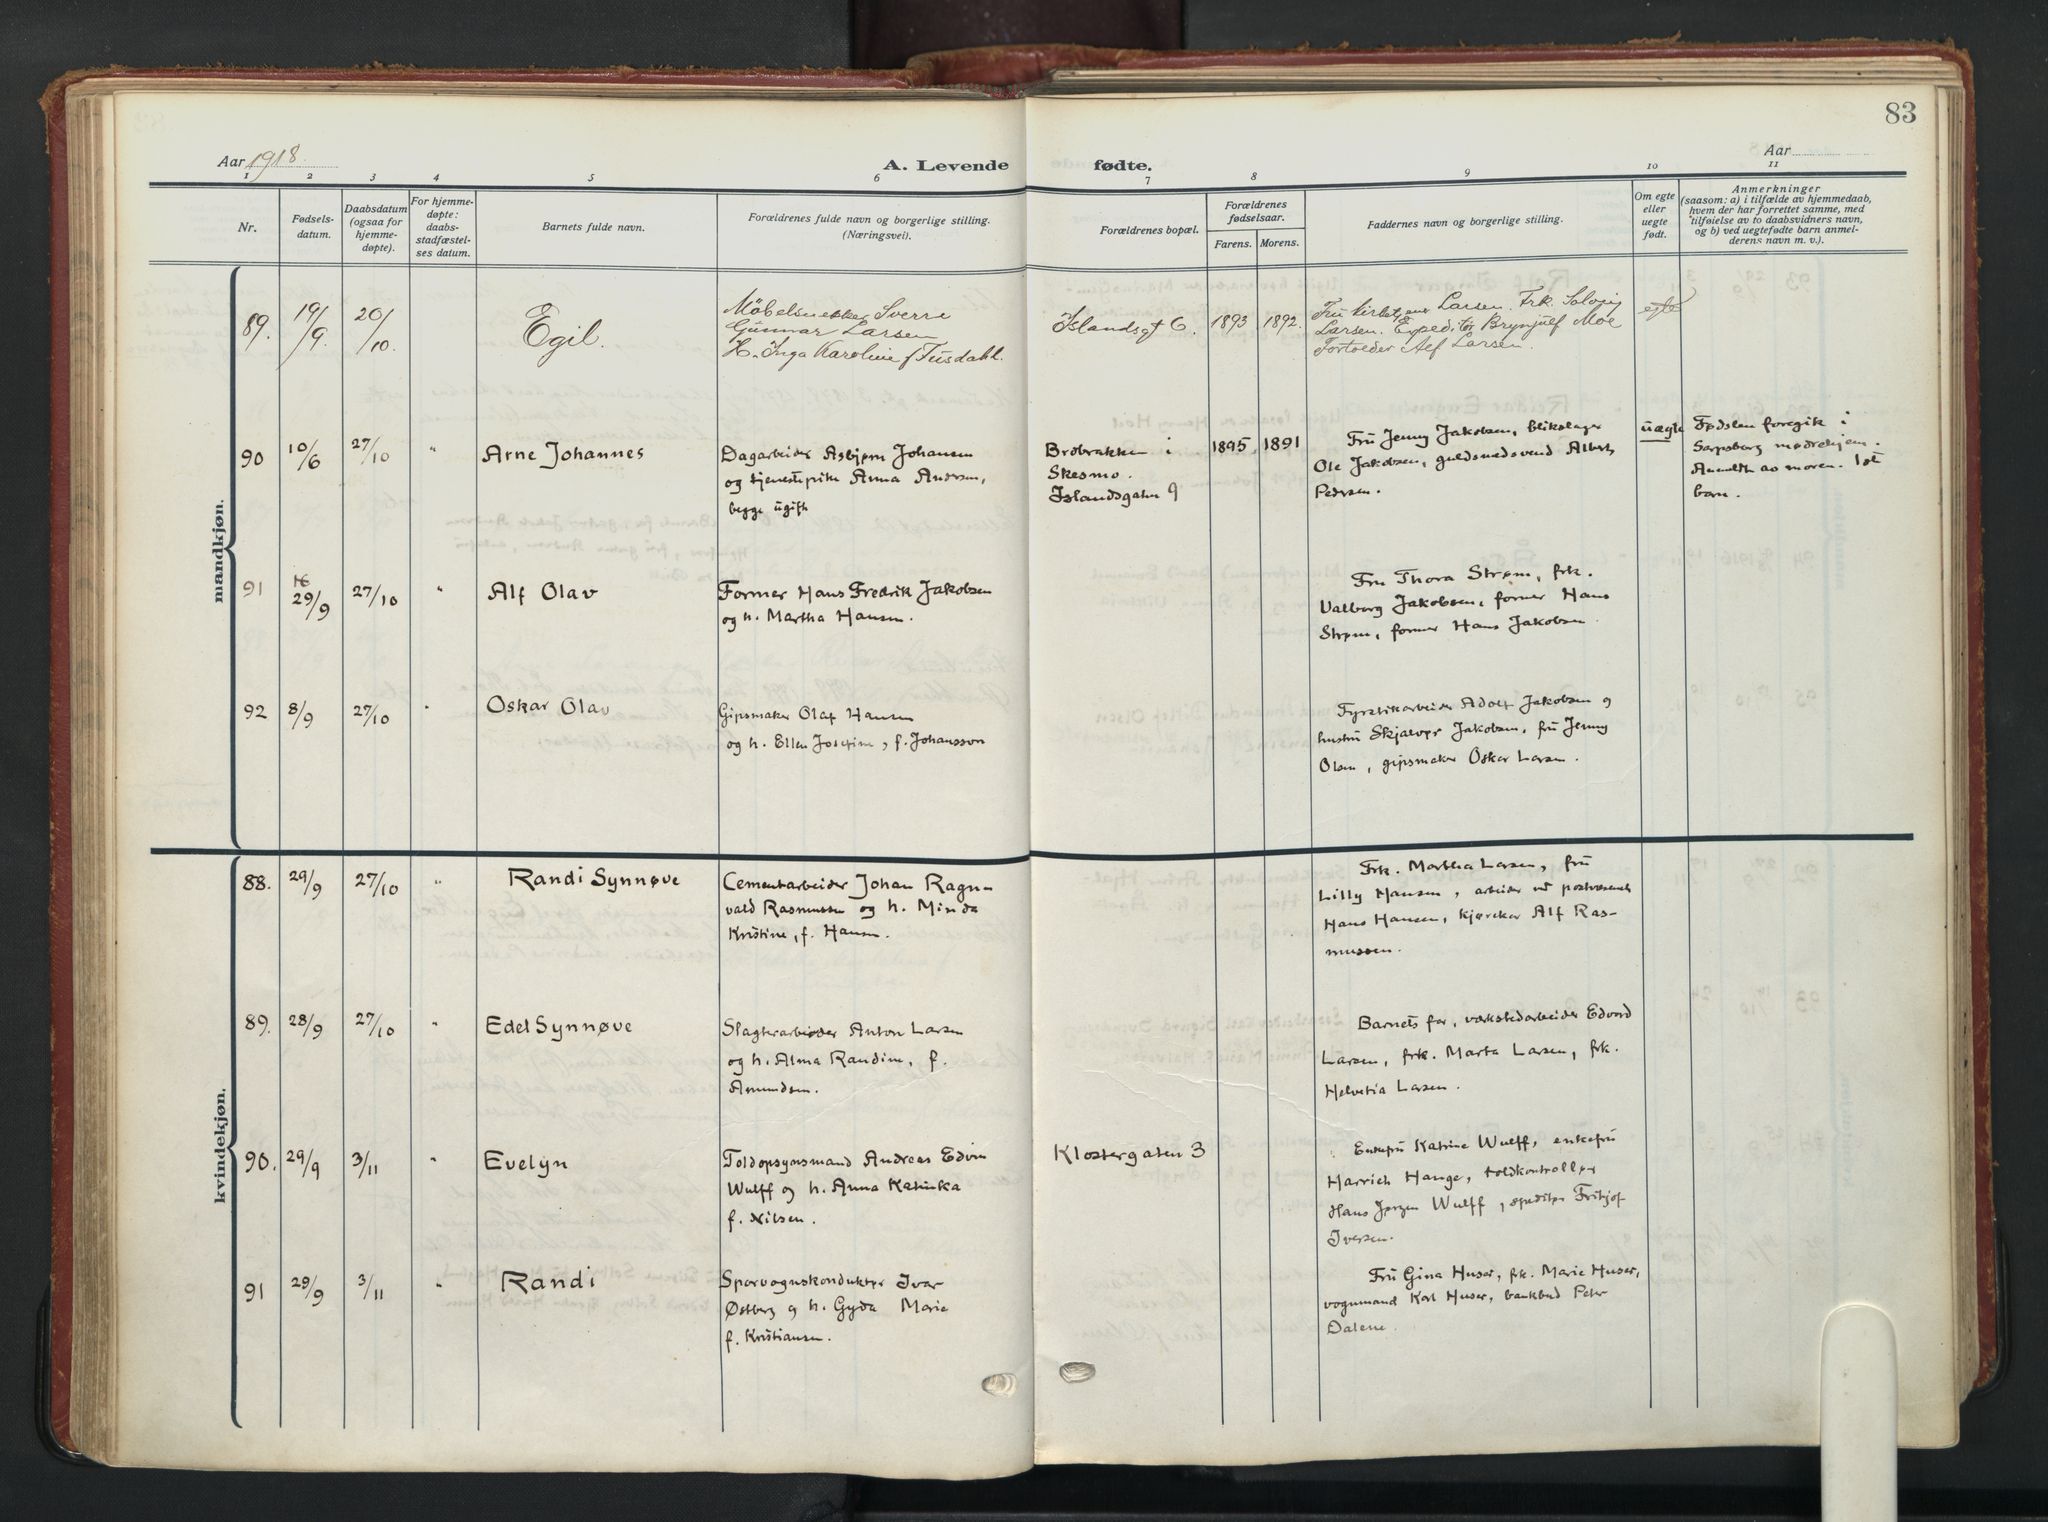 83
Aar 1918.
A. Levende fødte.
Aar
1 2 3 4 5 6 7 8 9 10 11
Nr.
Fødsels-
datum.
Daabsdatum
(ogsaa for
hjemme-
døpte).
For hjemme-
døpte:
daabs-
stadfæstel-
ses datum.
Barnets fulde navn.
Forældrenes fulde navn og borgerlige stilling.
(Næringsvei).
Forældrenes bopæl.
Forældrenes
fødselsaar.
Farens. Morens.
Faddernes navn og borgerlige stilling.
Om egte
eller
uegte
født.
Anmerkninger
(saasom: a) i tilfælde av hjemmedaab,
hvem der har forrettet samme, med
tilføielse av to daabsvidners navn,
og b) ved uegtefødte barn anmel-
derens navn m. v.).
mandkjøn.
89. 19/9. 20/10. Egil.
Möbelsnekker Sverre
Gunnar Larsen
H. Inga Karoline f
Islandsgt 6. 1893 1892.
Fru Larsen. Frk. Solveig
Larsen. Expeditör Brynjulf Moe
Alf Larsen.
egte
90 10/6 27/10 " Arne Johannes
Dagarbeider Asbjørn Johansen
og tjenestepike Anna Andersen,
begge ugifte
Brobrakken i
Skesmo.
Islandsgaten 9
1895 1891
Fru Jenny Jakobsen, blikslager
Ole Jakobsen, guldsmedsvend Albert
Pedersen.
uægte
Fødslen foregik i
Sarpsborg mødrehjem.
Anmeldt av moren. 1st
barn.
91 16 29/9 27/10 " Alf Olav
Former Hans Fredrik Jakobsen
og h. Martha Hansen.
Fru Thora Strøm, frk.
Valborg Jakobsen, former Hans
Strøm, former Hans Jakobsen.
92 8/9 27/10 " Oskar Olav
Gipsmaker Olaf Hansen
og h. Ellen Josefine, f. Johansson
Fyrstikarbeider Adolf Jakobsen og
hustru Jakobsen, fru Jenny
Olsen, gipsmaker Oskar Larsen.
kvindekjøn.
88. 29/9 27/10 " Randi Synnøve
Cementarbeider Johan Ragn-
vald Rasmussen og h. Minda
Kristine, f. Hansen.
Frk. Martha Larsen, fru
Lilly Hansen, arbeider ved postvæsenet
Hans Hansen, kjøreker Alf Ras-
mussen.
89. 28/9 27/10 " Edel Synnøve
Slagterarbeider Anton Larsen
og h. Alma Randine, f.
Amundsen.
Barnets far, værkstedarbeider Edvard
Larsen, frk. Marta Larsen, frk.
Helvetia Larsen.
90. 29/9 3/11 " Evelyn
Toldopsynsmand Andreas Edvin
Wulff og h. Anna Katinka
f. Nilsen.
Klostergaten 3
Enkefru Katrine Wulff, enkefru
Harriet Hange, toldkontrollør
Hans Jørgen Wulff, speditør Fritjof
Iversen.
91 29/9 3/11 " Randi
Sporvognskonduktør Ivar
Østberg og h. Gyda Marie
f. Kristiansen.
Fru Gina Huser, frk. Marie Huser,
vognmand Karl Huser, bankbud Peter
Dalene.